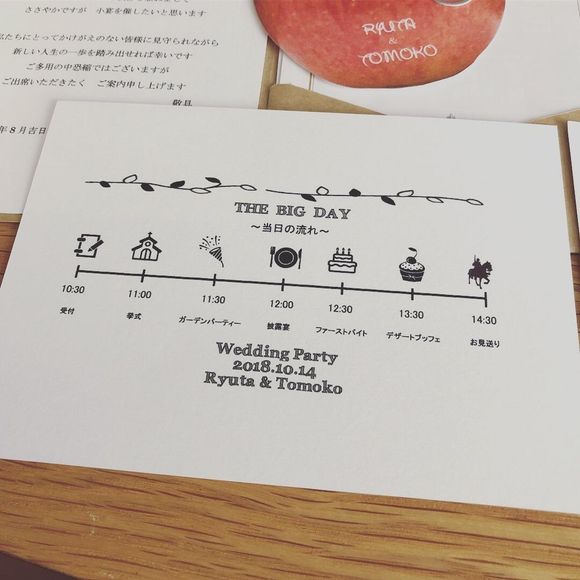 ささやかですが 小宴を催したいと思います
私たちにとってかけがえのない皆様に見守られながら
新しい人生の一歩を踏み出せれば幸いです
ご多用の中恐縮ではございますが
ご出席いただきたく ご案内申し上げます
敬具
年8月吉日
RYUTA
&
TOMOKO
THE BIG DAY
～当日の流れ～
10:30 11:00 11:30 12:00 12:30 13:30 14:30
受付 挙式 ガーデンパーティー 披露宴 ファーストバイト デザートブッフェ お見送り
Wedding Party
2018.10.14
Ryuta & Tomoko